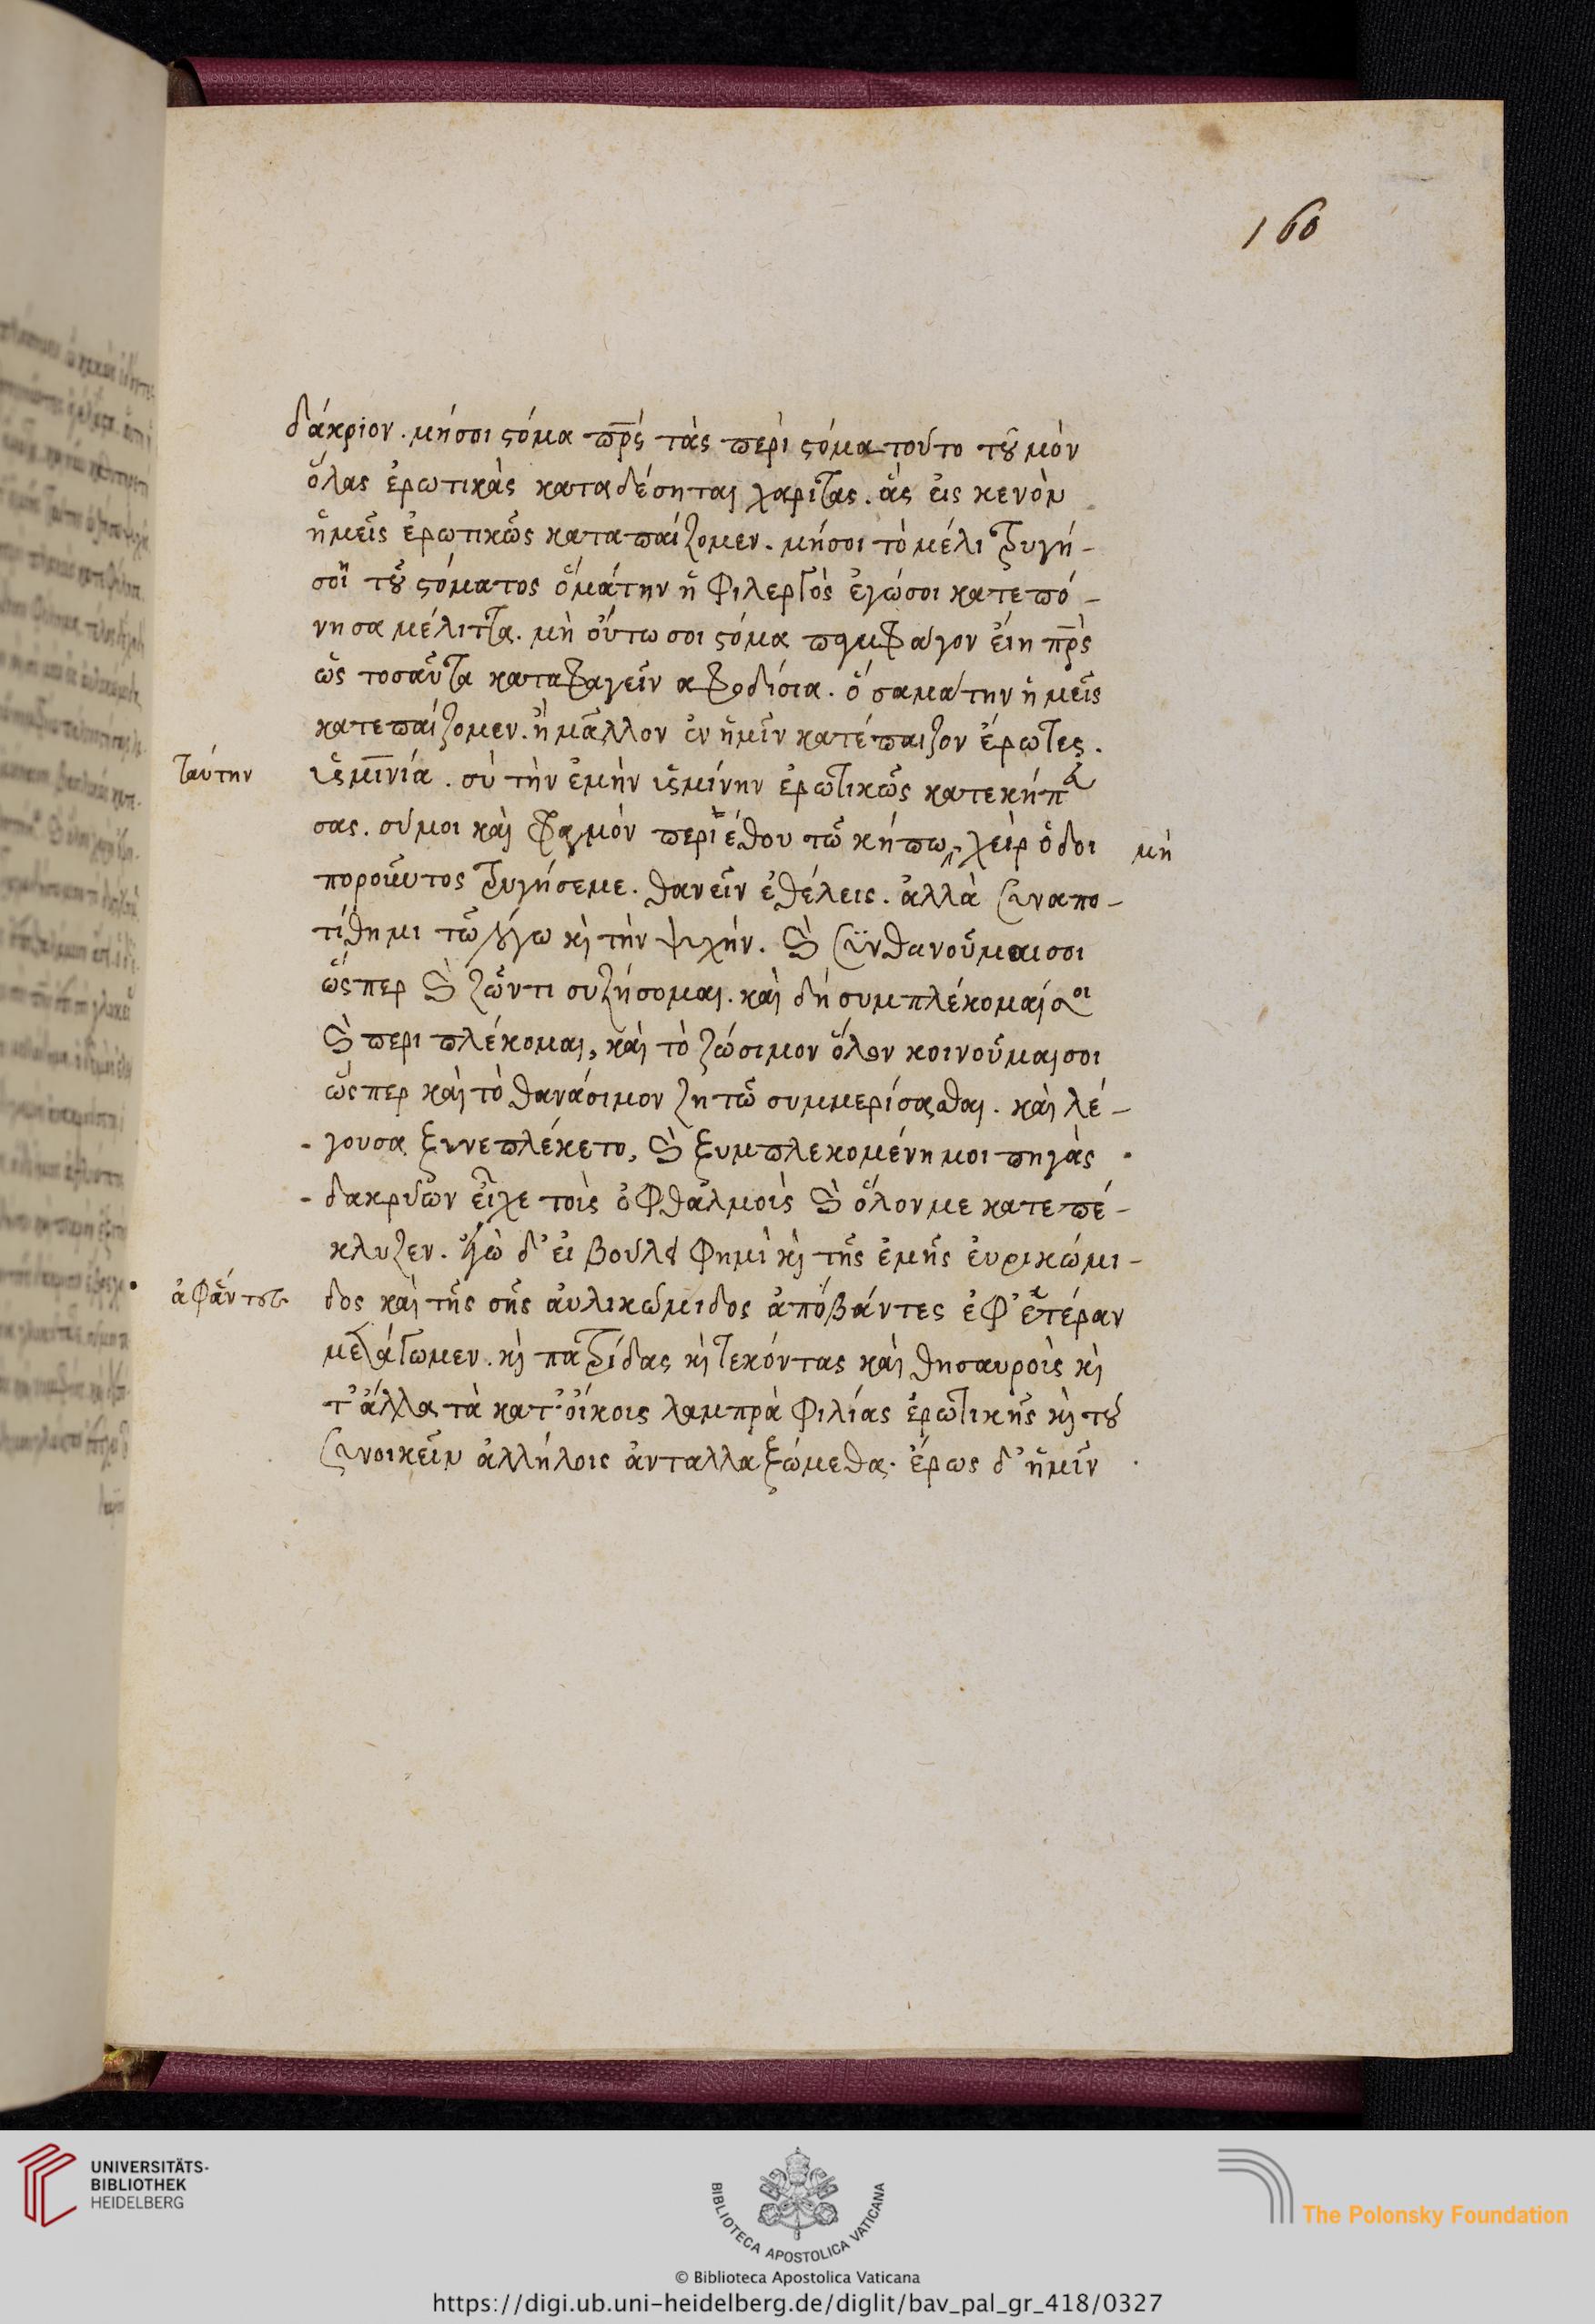 160
δάκριον. μήσοι ϛόμα πρός τὰς περὶ ϛόμα τούτο τοῦμὸν
ὅλας ἐρωτικὰς καταδέσηται χαρίτας. ἃς εἰς κενὸν
ἡμεῖς ἐρωτικῶς καταπαίζομεν. μήσοι τὸ μέλι τρυγή-
σοι τοῦ ϛόματος ὃ μάτην ἡ φιλεργὸς ἐγώσοι κατεπό-
νησα μέλιττα. μὴ οὕτω σοι ϛόμα παμφάγον εἴη πρὸς
ὡς τοσαῦτα καταφαγεῖν αφροδίσια. ὅσα μάτην ἡμεῖς
κατεπαίζομεν. ἢ μᾶλλον ἐν ἡμῖν κατέπαιζον ἔρωτες.
ταύτην
ὑσμινία. σὺ τὴν ἐμὴν ὑσμίνην ἐρωτικῶς κατεκήπα
σας. σύμοι καὶ φραγμὸν περιέθου τῶ κήπω, χεὶρ ὁδοι
μὴ
ποροῦντος τρυγήσεμε. θανεῖν ἐθέλεις. ἀλλὰ συναπο-
τίθημι τῶ λόγω κὶ τὴν ψυχήν. καὶ συνθανοῦμαισοι
ὥςπερ καὶ ζῶντι συζήσομαι. καὶ δή συμπλέκομαίσοι
καὶ περιπλέκομαι, καὶ τὸ ζώσιμον ὅλον κοινοῦμαισοι
ὥςπερ καὶ τὸ θανάσιμον ζητῶ συμμερίσασθαι. καὶ λέ-
γουσα ξυνεπλέκετο, καὶ ξυμπλεκομένη μοι πηγὰς
δακρύων εἶχε τοὶς ὀφθαλμοὶς καὶ ὅλον με κατεπέ-
κλυζεν. ἐγὼ δ' εἰ βούλει φημὶ κὶ τῆς ἐμῆς ἐυρικώμι-
ἀφάντες
δος καὶ τῆς σῆς ἀυλικώμιδος ἀποβάντες ἐφ' ἑτέραν
μελάτωμεν. κὶ πατρίδας κὶ τεκόντας καὶ θησαυροὶς κὶ
τ' ἄλλα τὰ κατ' οἴκοις λαμπρὰ φιλίας ἐρωτικῆς κὶ τοῦ
συνοικεῖν ἀλλήλοις ἀνταλλαξώμεθα. ἔρως δ' ἡμῖν
UNIVERSITÄTS-
BIBLIOTHEK
HEIDELBERG
BIBLIOTECA APOSTOLICA VATICANA
The Polonsky Foundation
© Biblioteca Apostolica Vaticana
https://digi.ub.uni-heidelberg.de/diglit/bav_pal_gr_418/0327